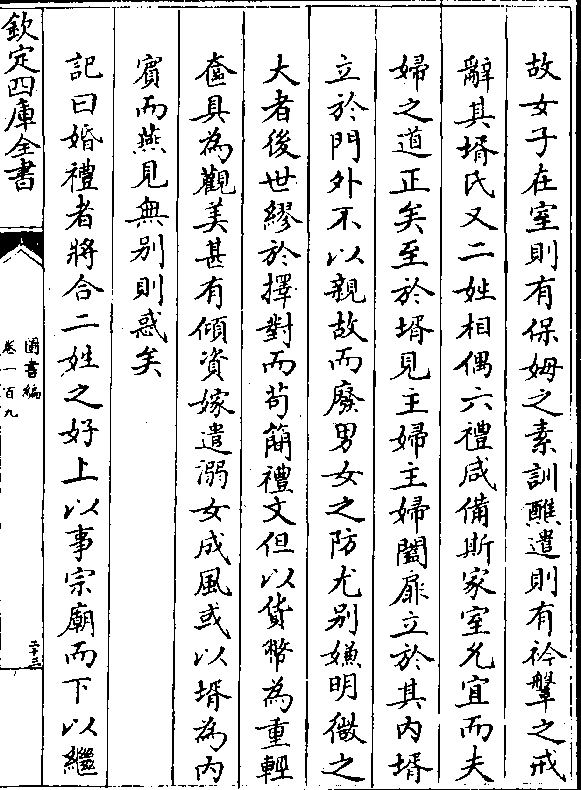 故女子在室則有保姆之素訓醮遣則有衿鞶之戒
辭其壻氏又二姓相偶六禮咸備斯家室允宜而夫
婦之道正矣至於壻見主婦主婦闔扉立於其內壻
立於門外不以親故而廢男女之防尤别嫌明微之
大者後世繆於擇對而茍簡禮文但以貨幣為重輕
奩具為觀美甚有傾資嫁遣溺女成風或以壻為內
賓而燕見無别則惑矣
記曰婚禮者將合二姓之好上以事宗廟而下以繼
欽定四庫全書
圖書編
卷一百九
二十三